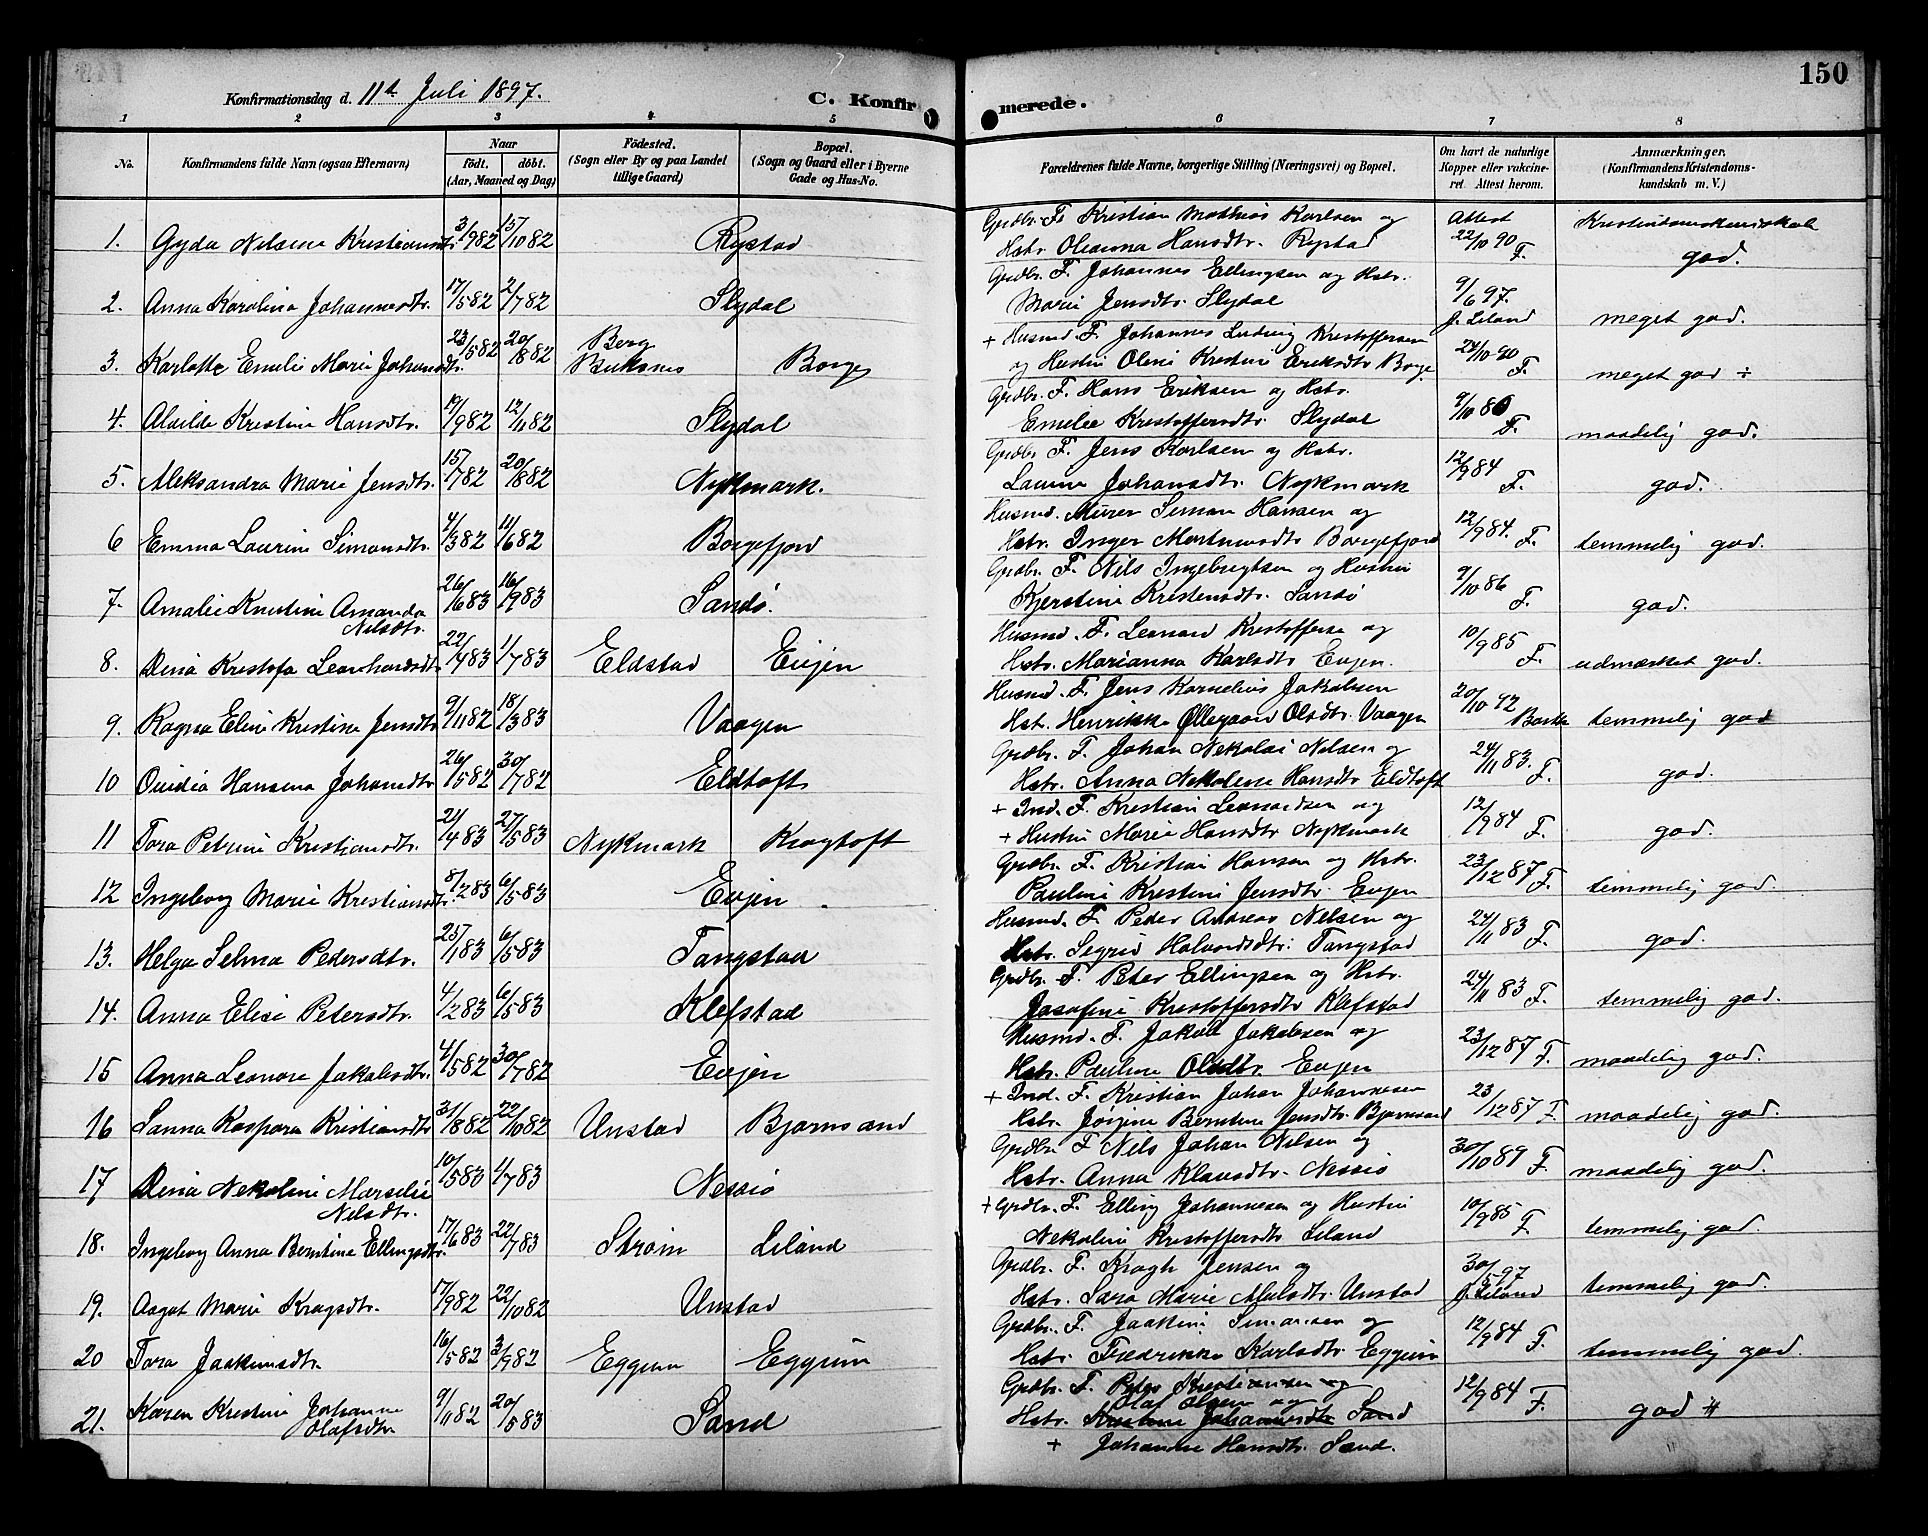 150
Konfirmationsdag d. 11te Juli 1897.
C. Konfirmerede.
1 2 3 4 5 6 7 8
No.
Konfirmandens fulde Navn (ogsaa Efternavn)
Naar
födt. döbt.
(Aar, Maaned og Dag)
Födested.
(Sogn eller By og paa Landet
tillige Gaard)
Bopæl.
(Sogn og Gaard eller i Byerne
Gade og Hus-No.
Forældrenes fulde Navne, borgerlige Stilling (Næringsvei) og Bopæl.
Om havt de naturlige
Kopper eller vakcine-
ret. Attest herom.
Anmærkninger.
(Konfirmandens Kristendoms-
kundskab m. V.)
1. Gyda Nilsina Kristiansdtr. 3/9 82 15/10 82 Rystad
Grdbr. F. Kristian Mathias Karlsen og
Hstr. Oleanna Hansdtr. Rystad
Attest
22/10 90 F.
Kristendomskundskab
god.
2. Anna Karolina Johannesdtr. 17/5 82 2/7 82 Slydal
Grdbr. F. Johannes Ellingsen og Hstr.
Marie Jensdtr. Slydal
9/6 97.
J. Liland
meget god.
3. Karlotte Emelie Marie Johansdtr. 23/5 82 20/8 82 Berg
Buksnes Borge
+ Husmd F. Johannes Ludvig Kristoffersen
og Hustru Oline Kristine Eriksdtr Borge
24/10 90 F.
meget god ÷
4. Alvilde Kristine Hansdtr. 19/9 82 12/11 82 Slydal
Grdbr. F. Hans Eriksen og Hstr.
Emelie Kristoffersdtr. Slydal
9/10 86 F.
maadelig god.
5. Aleksandra Marie Jensdtr. 15/7 82 20/8 82 Nykmark.
Grdbr F. Jens Karlsen og Hstr.
Laurine Johansdtr. Nykmark
12/9 84 F.
god.
6 Emma Laurine Simonsdtr. 4/3 82 11/6 82 Borgefjord
Husmd. Murer Simon Hansen og
Hstr. Inger Martinusdtr Borgefjord
12/9 84. F.
temmelig god.
7. Amalie Knutine Amanda
Nilsdtr. 26/6 83 16/9 83 Sandö.
Grdbr. F. Nils Ingebrigtsen og Hustru
Kjerstine Kristensdtr. Sandö
9/10 86 F.
god.
8. Dina Kristofa Leonhardsdtr 22/4 83 1/7 83 Eldstad Evjen
Husmd. F. Leonard Kristoffersen og
Hstr. Marianna Karlsdtr Evjen.
10/9 85 F.
udmærket god.
9. Ragna Eline Kristine Jensdtr 9/11 82 18/3 83 Vaagen
Husmd. F. Jens Kornelius Jakobsen
Hst. Henrikke Øllegaard Olsdtr. Vaagen
20/10 92
temmelig god
10 Ovidia Hansina Johansdtr 26/5 82 30/7 82 Eldtoft
Grdbr. F. Johan Nekolai Nilsen og
Hstr. Anna Nekoline Hansdtr Eldtoft
24/11 83. F.
god.
11 Tora Petrine Kristiansdtr. 21/4 83 27/5 83 Nykmark Kragtoft
+ Ind. F. Kristian Leonardsen og
+ Hustru Marie Hansdtr Nykmark
12/9 84 F.
god.
12 Ingeborg Marie Kristiansdtr. 8/2 83 6/5 83 Evjen
Grdbr. F. Kristian Hansen og Hstr.
Pauline Kristine Jensdtr. Evjen
23/12 87 F.
temmelig god.
13. Helga Selma Pedersdtr. 25/1 83 6/5 83 Tangstad
Husmd. F. Peder Andreas Nilsen og
Hstr. Segrid Halvordsdtr. Tangstad
24/11 83 F.
god.
14. Anna Elise Petersdtr. 4/2 83 6/5 83 Klefstad
Grdbr. F. Peter Ellingsen og Hstr.
Josefine Kristoffersdtr Klefstad
24/11 83 F.
temmelig god.
15 Anna Leonore Jakobsdtr. 4/5 82 30/7 82 Evjen
Husmd. F. Jakob Jakobsen og
Hstr. Pauline Olsdtr. Evjen
23/12 87 F.
maadelig god.
16 Sanna Kaspara Kristiansdtr 31/8 82 22/10 82 Unstad Bjørnsand
+ Ind. F. Kristian Johan Johannesen
Hstr. Jørgine Berntine Jensdtr. Bjørnsand
23/12 87 F.
maadelig god.
17 Dina Nekoline Marselie
Nilsdtr. 10/5 83 1/7 83 Nessiö
Grdbr. F Nils Johan Nilsen og
Hstr. Anna Klausdtr. Nessiö
30/10 89 F.
maadelig god.
18. Ingeborg Anna Berntine Ellingsdtr. 17/6 83 22/7 83 Ström Liland
+ Grdbr. F. Elling Johannesen og Hustru
Nekoline Kristoffersdtr Liland
10/9 85 F.
temmelig god.
19. Aagot Marie Kragsdtr. 17/9 82 22/10 82 Unstad
Grdbr. F. Kragh Jensen og
Hstr. Sara Marie Nilsdtr. Unstad
30/5 97
J. Liland
temmelig god.
20 Tora Joakimsdtr. 16/5 82 3/9 82 Eggum Eggum
Grdbr. F. Joakim Simonsen og
Hstr. Fredrikke Karlsdtr. Eggum
12/9 84 F.
temmelig god.
21. Karen Kristine Johanne
Olafsdtr. 9/11 82 20/5 83 Sand
Grdbr. F. Peder Kristiansen og
Olaf Olsen og
Hstr. Kristine Johannesdtr Sand
+ Johanne Hansdtr. Sand.
12/9 84 F.
god